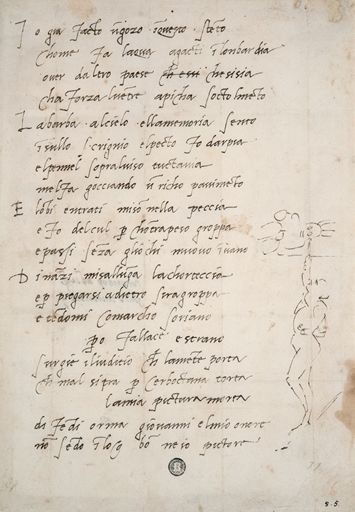 I o gia facto ũ gozo ĩ questo stẽto
chome fa laqua agacti ĩ lombardia
over daltro paese ch essi chesisia
cha forza lventre apicha socto lmẽto
L a barba alcielo ella memoria sento
ĩ sullo scrignio e lpecto fo darpia
e lpennel sopra luiso tuctauia
mel fa gocciando ũ richo pauimẽto
E lobi entrati miso nella peccia
e fo del cul p chotrapeso groppa
e passi sẽza gliochi muouo ĩuano
D inãzi misallũga lachorteccia
e p piegarsi adietro siragroppa
e tẽdomi comarcho soriano
po fallace e strano
surgie iliuditio ch lamẽte porta
ch mal sitra p cerboctana torta
lamia pictura morta
difedi orma giouanni elmio onore
nõ sẽdo ĩlog bõ ne io pictore
8.5